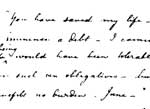 "You have saved my life -
immense a debt - I cannot
would have been tolerable
such an obligation - but
benefits no burden. Jane - "